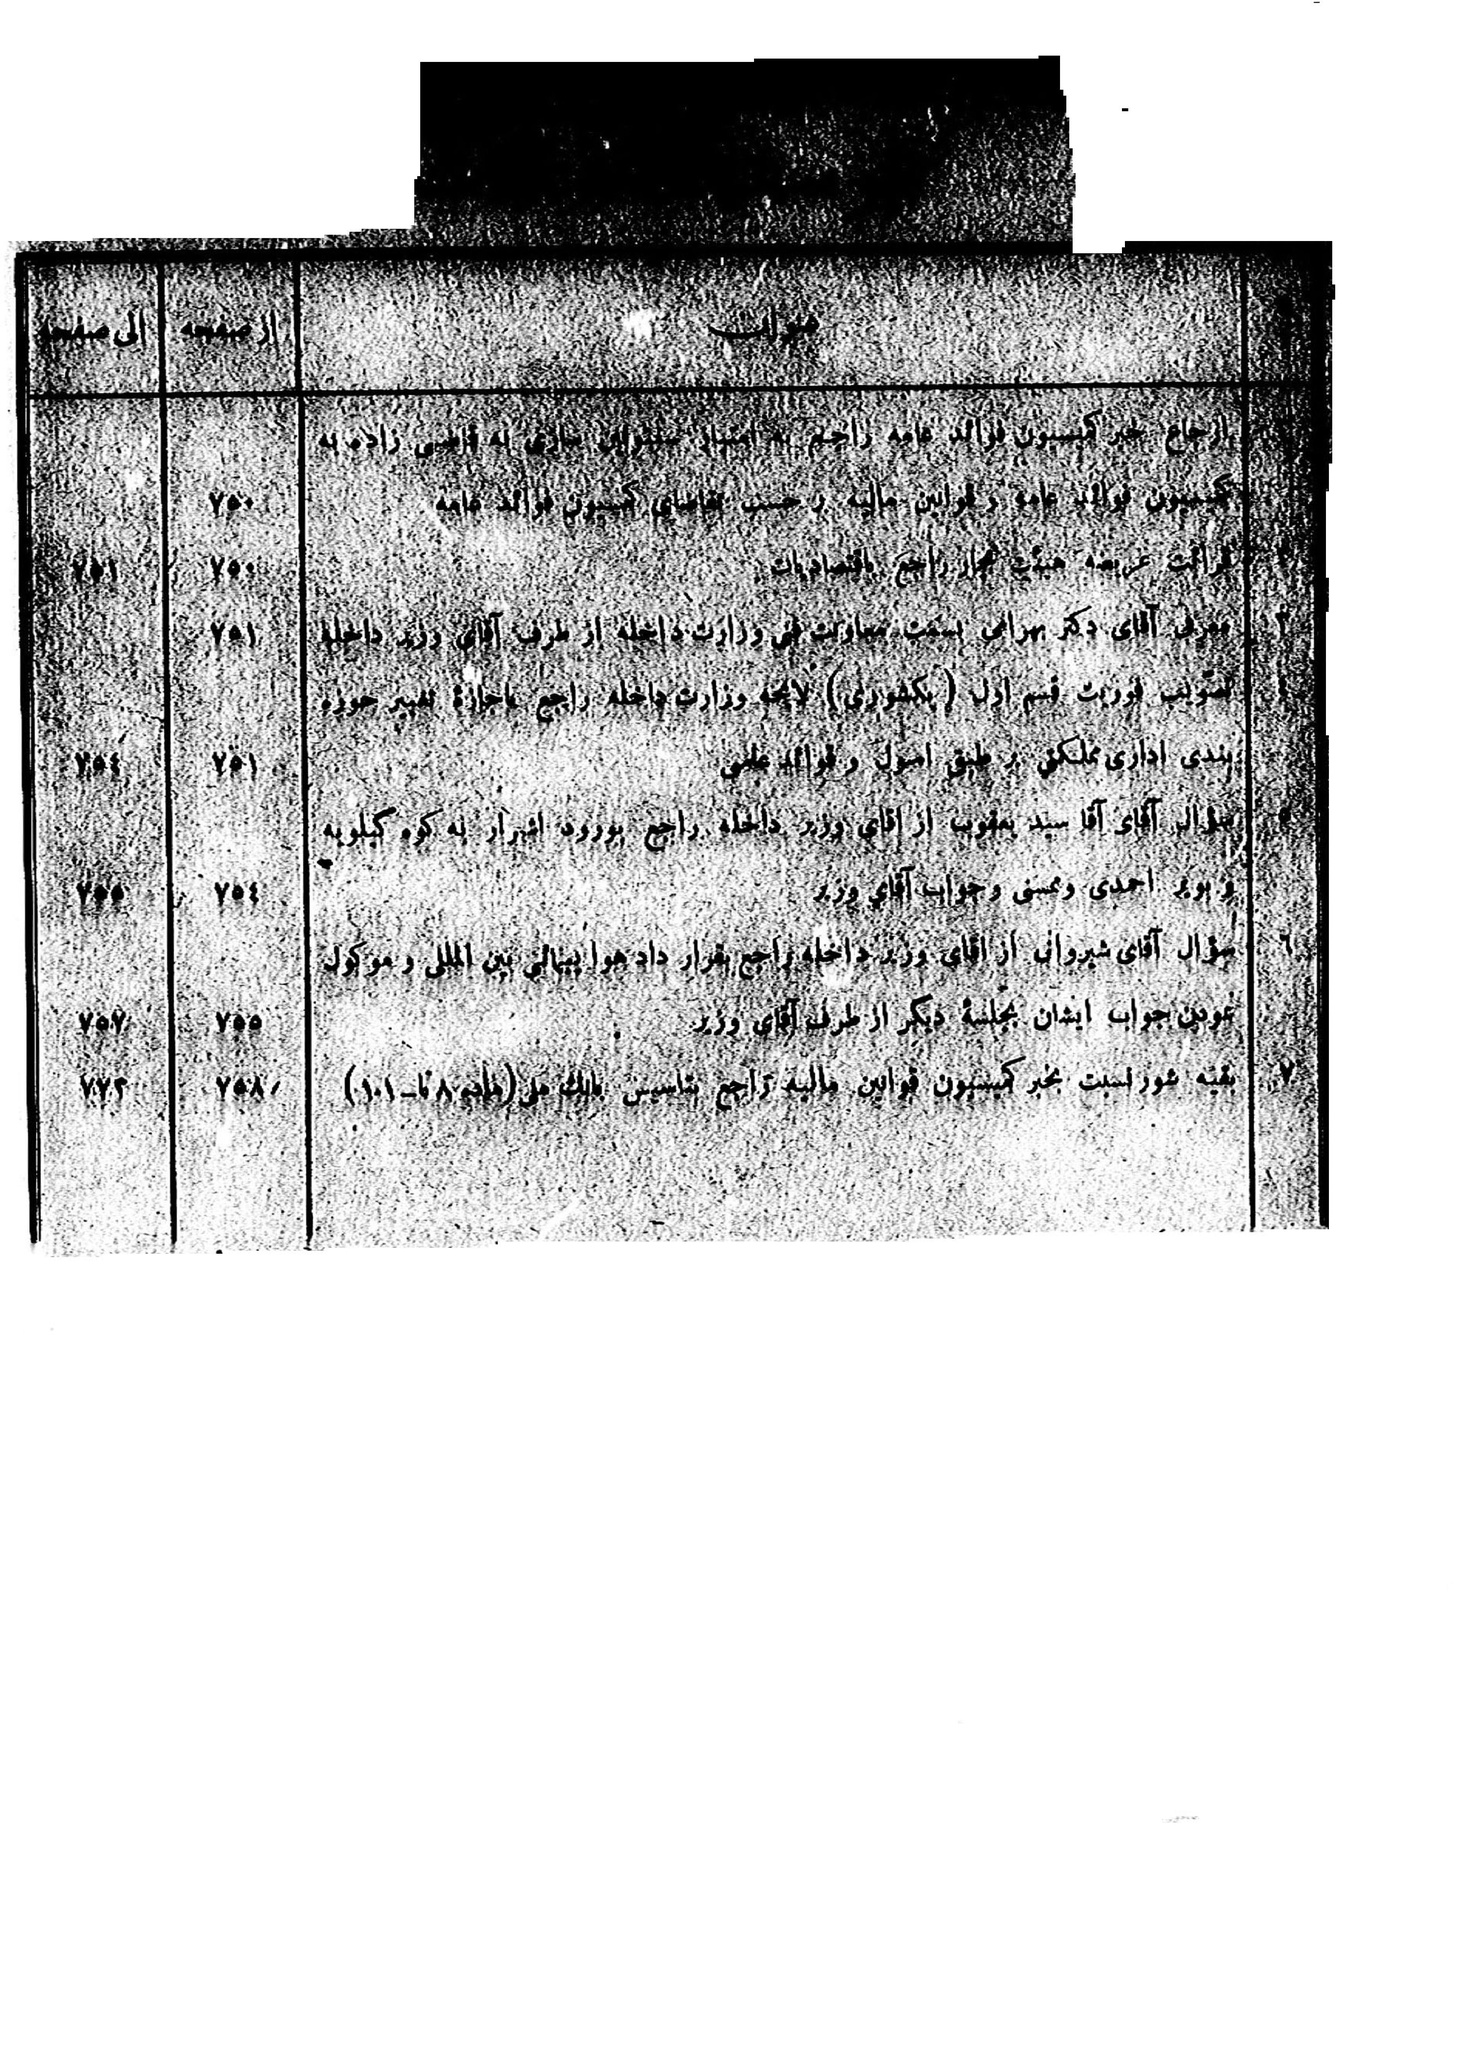 عنوان از صفحه الی صفحه
ارجاع خبر کمیسیون فوائد عامه راجع به امتیاز سازی به قاضی زاده به
کمیسیون فوائد عامه و قوانین مالیه بر حسب تقاضای کمیسیون فوائد عامه ۷۵۰
قرائت عریضه هیئت تجار راجع باقتصادیات ۷۵۰ ۷۵۱
۳ معرفی آقای دکتر بهرامی بسمت معاونت فنی وزارت داخله از طرف آقای وزیر داخله ۷۵۱
٤ تصویب فوریت قسم اول ( یکشوری ) لایحه وزارت داخله راجع باجازۀ تغییر حوزه
بندی اداری مملکتی بر طبق اصول و قوائد علمی ۷۵۱ ۷۵٤
۵ سؤال آقای آقا سید یعقوب از آقای وزیر داخله راجع بورود اشرار به کوه گیلویه
و بویر احمدی وممسنی و جواب آقای وزیر ۷۵٤ ۷۵۵
٦ سؤال آقای شیروانی از آقای وزیر داخله راجع بقرار داد هوا پیمائی بین المللی و موکول
نمودن جواب ایشان بجلسۀ دیگر از طرف آقای وزیر ۷۵۵ ۷۵۷
۷ بقیه شور نسبت بخبر کمیسیون قوانین مالیه راجع بتاسیس بانك ملی (ماده ۸ تا ۱۰۱) ۷۵۸ ۷۷۲